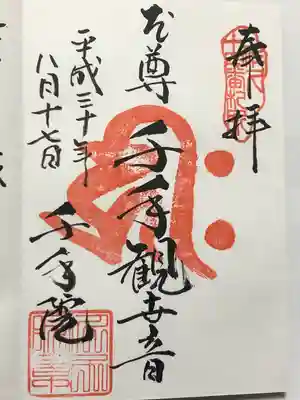 奉拝
本尊 千手観世音
平成三十年
八月十七日
千手院